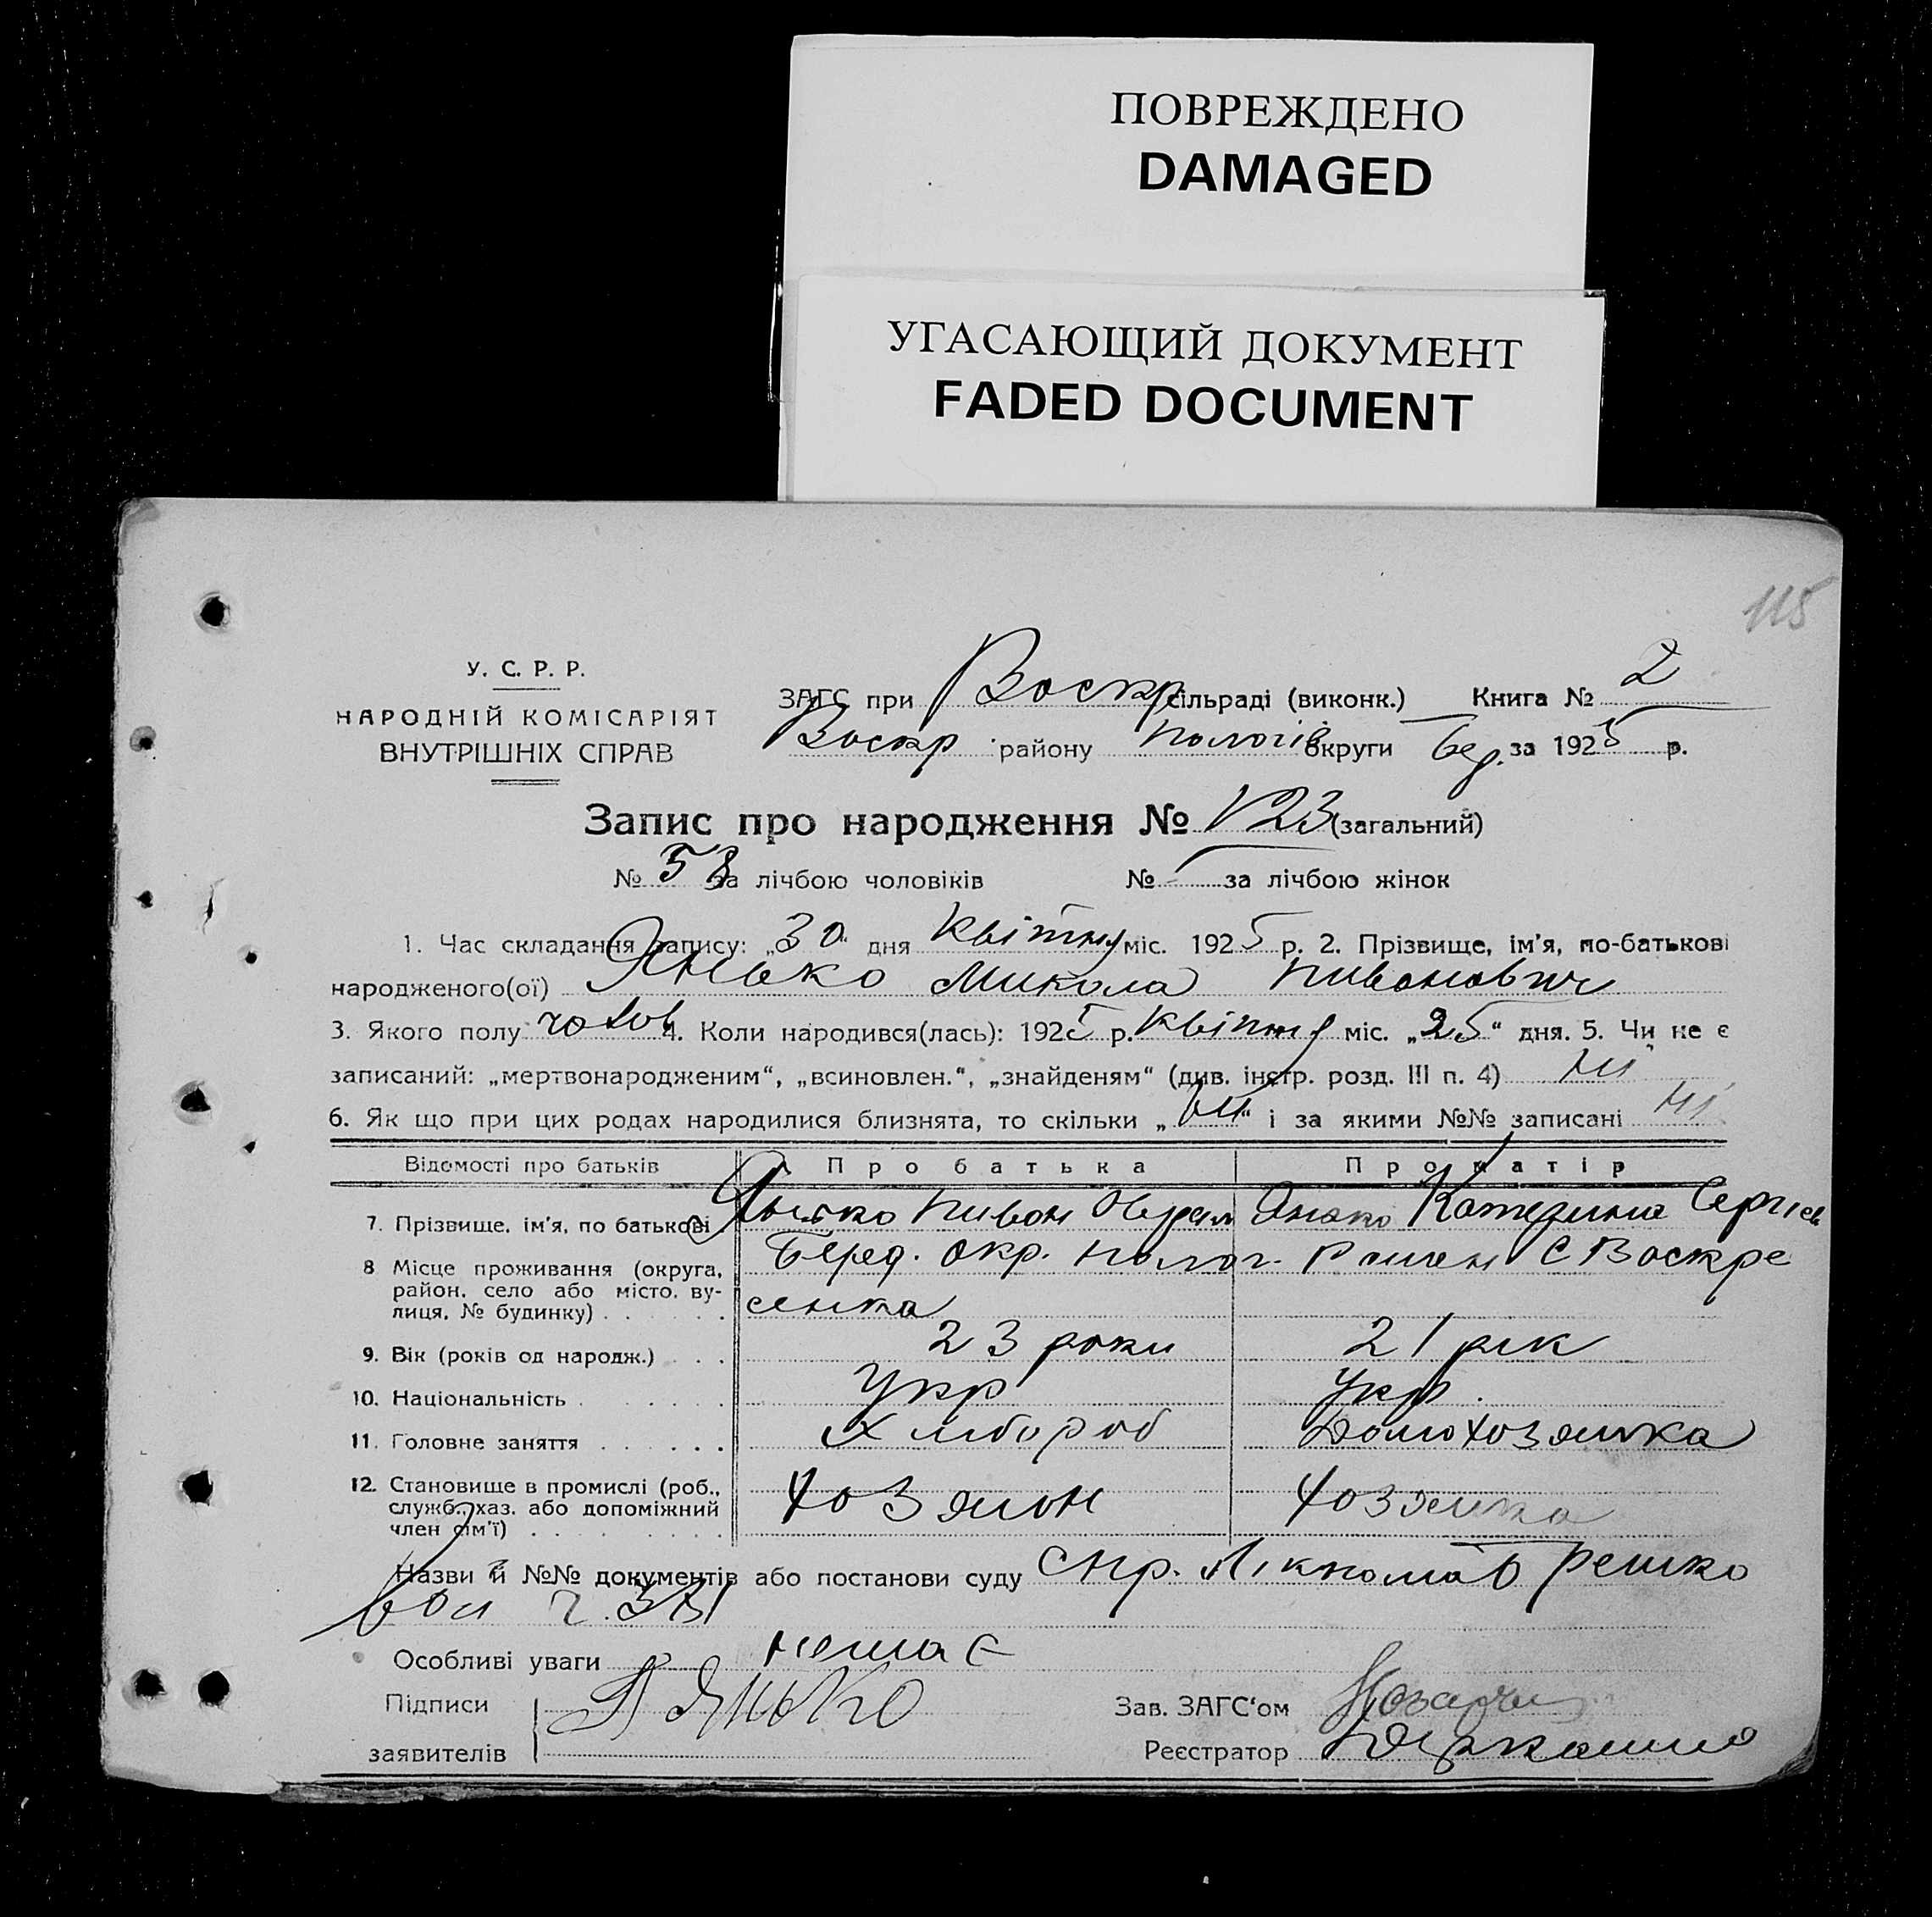 ПОВРЕЖДЕНО
DAMAGED
УГАСАЮЩИЙ ДОКУМЕНТ
FADED DOCUMENT
115
У. С. Р. Р.
НАРОДНІЙ КОМІСАРІЯТ
ВНУТРІШНІХ СПРАВ
ЗАГС при Воскр сільраді (виконк.) Книга № 2
Воскр району Пологів округи Бер. за 1925 р.
Запис про народження № 123 (загальний)
№ 58 за лічбою чоловіків № за лічбою жінок
1. Час складання запису: „30“ дня Квітня міс. 1925 р. 2. Прізвище, ім'я, по-батькові
народженого(ої) Янько Микола Пивонович
3. Якого полу чолов 4. Коли народився(лась): 1925 р. Квітня міс. „25“ дня. 5. Чи не є
записаний: „мертвонародженим“, „всиновлен.“, „знайденям“ (див. інстр. розд. III п. 4) ні
6. Як що при цих родах народилися близнята, то скільки „ні“ і за якими №№ записані ні
Відомості про батьків Про батька Про матір
7. Прізвище, ім'я, по батькові Янько Пивон Оврам Янько Катерина Сергієв
8 Місце проживання (округа, Беред. окр. Полог. Район С Воскре
район, село або місто, ву- сенка
лиця, № будинку)
9. Вік (років од народж.) 23 роки 21 рік
10. Національність Укр Укр.
11. Головне заняття Хлібороб Домохозяйка
12. Становище в промислі (роб., Хозяїон Хозяйка
служб., хаз. або допоміжний
член сім'ї)
Назви й №№ документів або постанови суду Спр.
ч. 331
Особливі уваги немає
Підписи П Янько Зав. ЗАГС'ом
заявителів Реєстратор